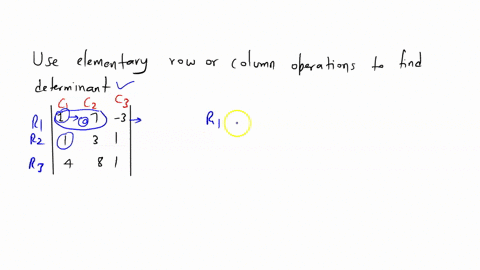 Use elementary row or column operations to find
determinant ✓
C1 C2 C3
R1 1 → 7 -3 → R1
R2 1 3 1
R3 4 8 1